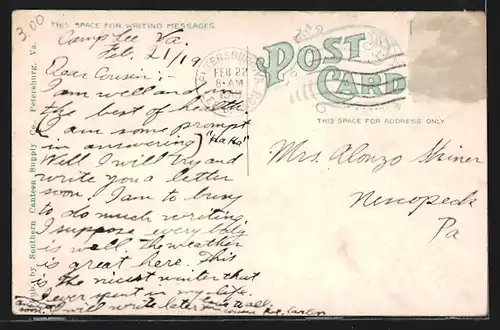 3.00
THIS SPACE FOR WRITING MESSAGES.
Camp Lee Va.
Feb. 21/19
Dear Cousin:-
I am well and in
the best of health.
(I am some prompt
in answering) "Ha Ha"
Well I will try and
write you a letter
soon. I am to busy
to do much writing
I suppose everything
is well. The weather
is great here. This
is the nicest winter that
I ever spent in my life.
I will write later
soon.
to all.
your cousin Pvt.
by Southern Canteen Supply Co., Petersburg, Va.
PETERSBURG, VA.
FEB 22
8-AM
POST
CARD
THIS SPACE FOR ADDRESS ONLY
Mrs. Alonzo Shiner
Nescopeck
Pa